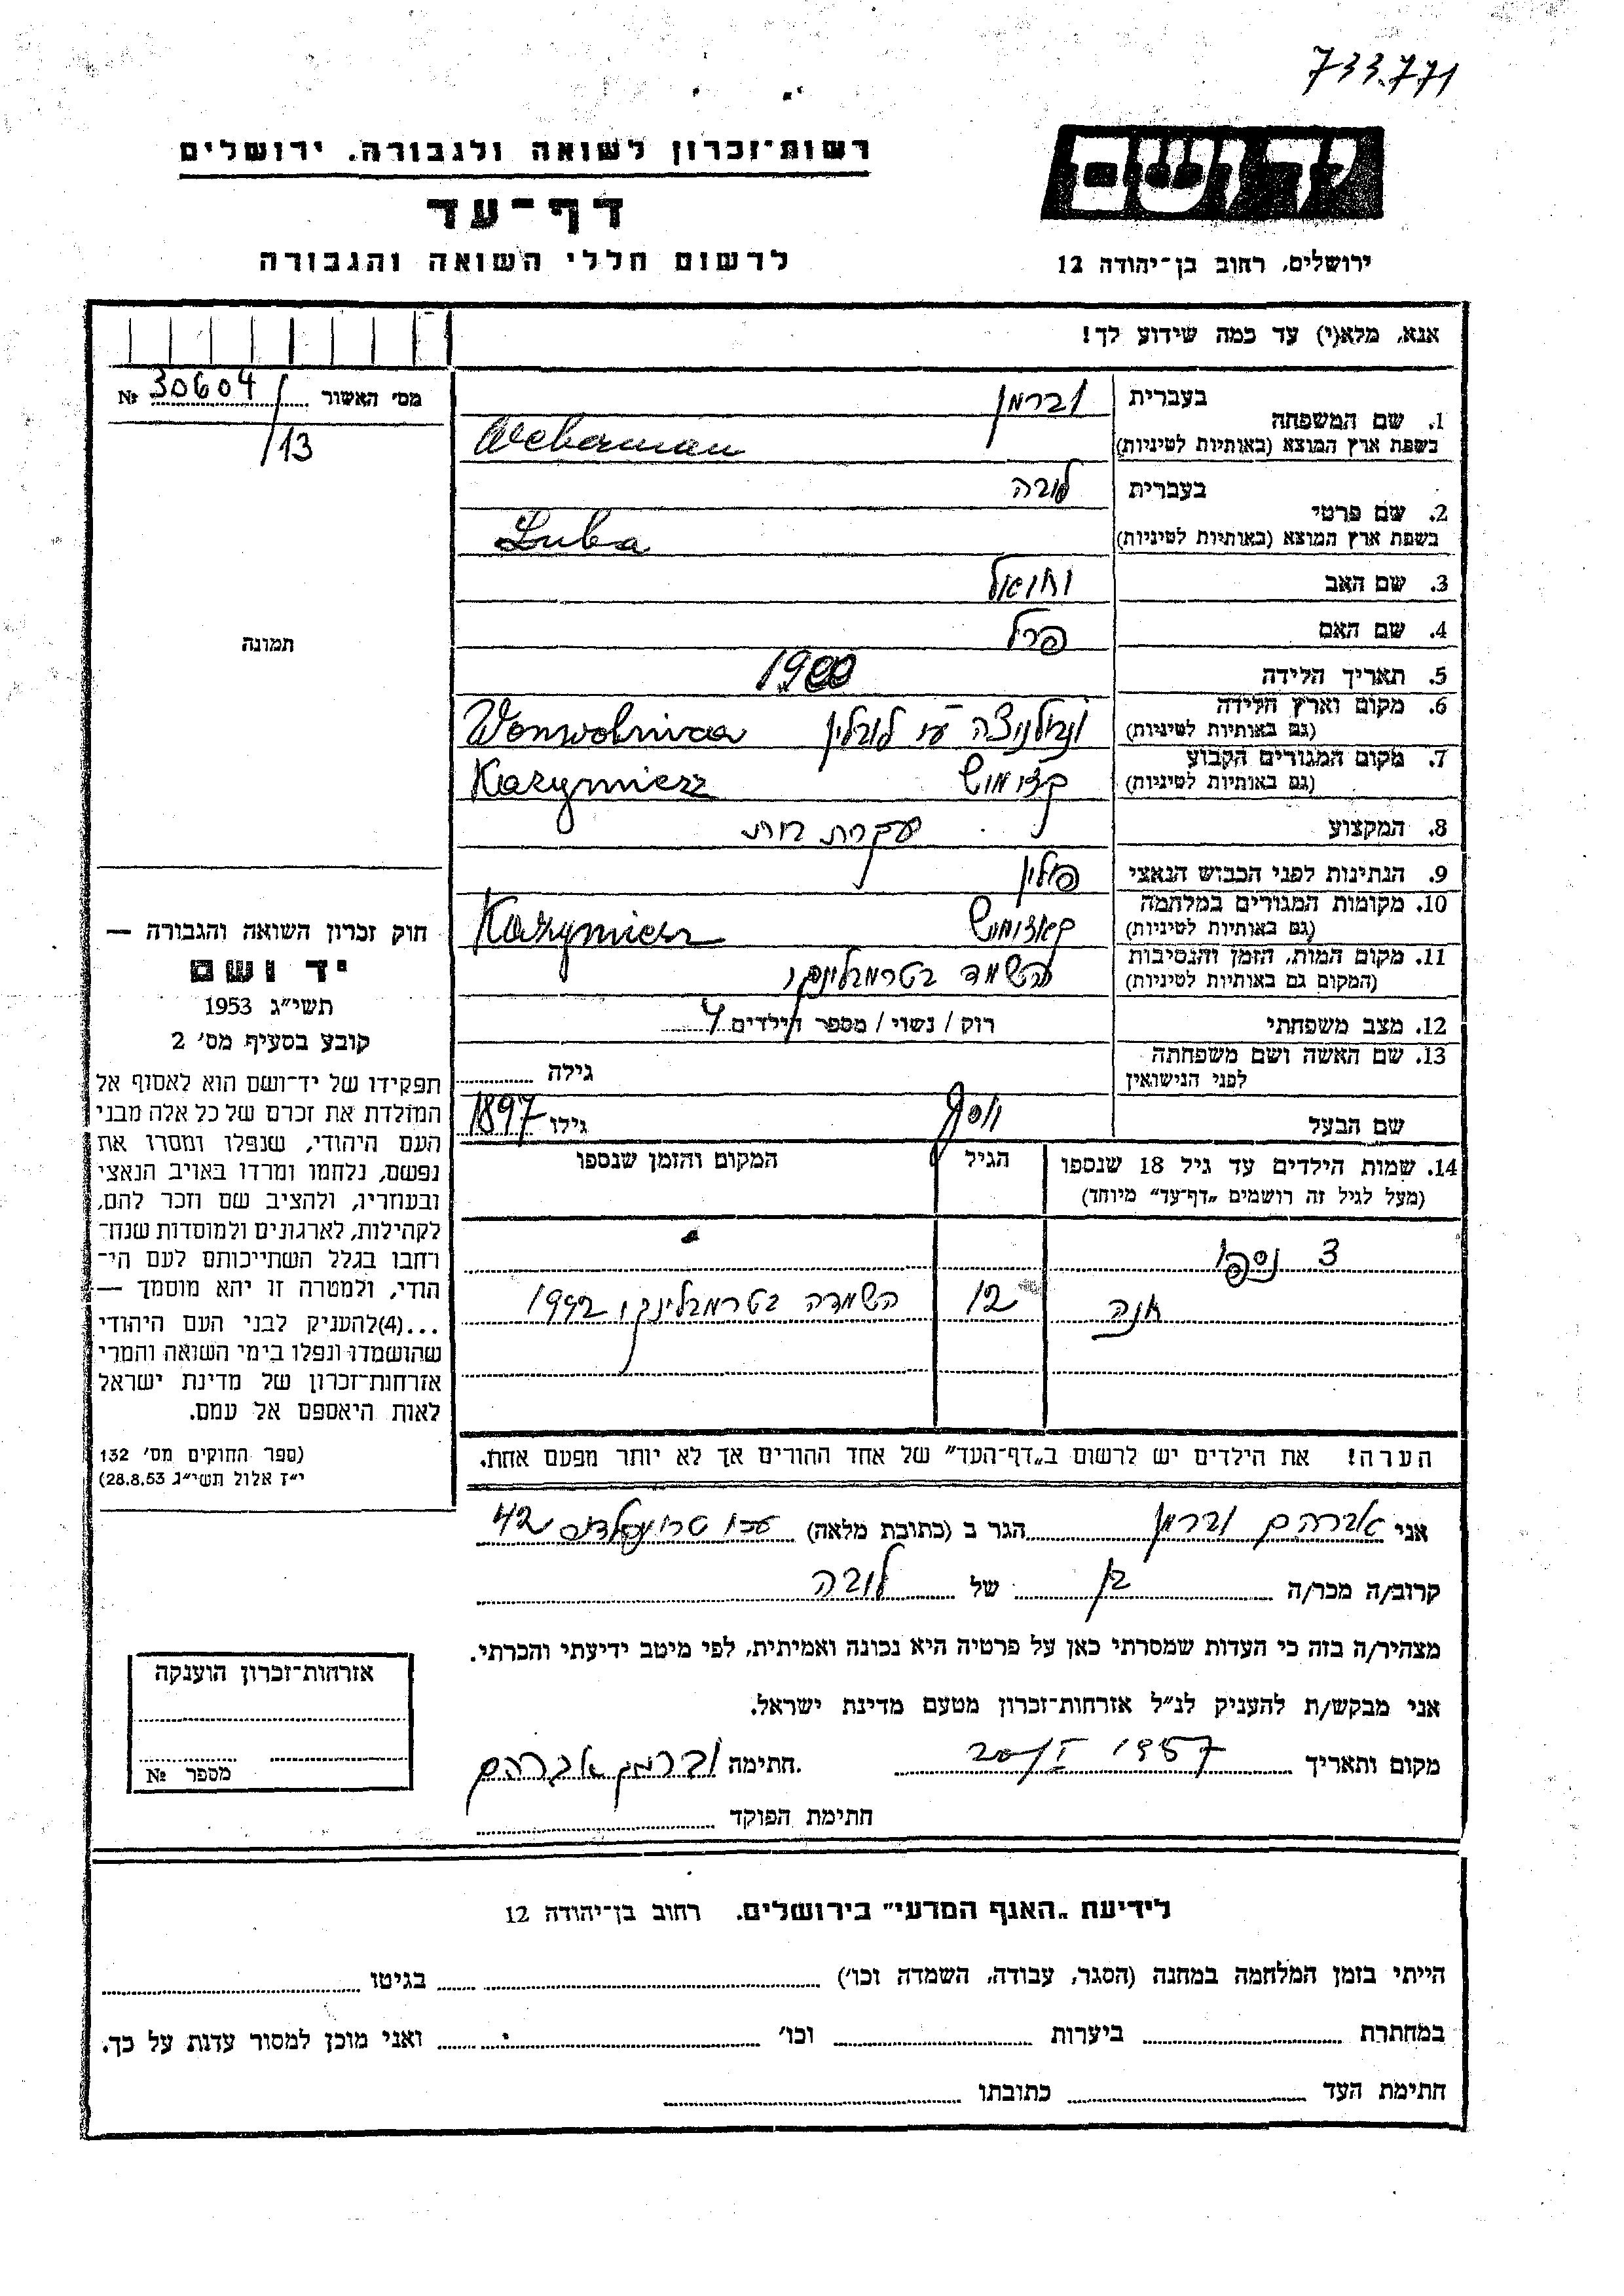 733.771
רשות־זכרון לשואה ולגבורה. ירושלים
דף־עד
לרשום חללי השואה והגבורה
יד ושם
ירושלים, רחוב בן־יהודה 12
אנא, מלא(י) עד כמה שידוע לך!
מס׳ האשור 30604 №
/13
תמונה
1. שם המשפחה
בעברית וברמן
בשפת ארץ המוצא (באותיות לטיניות) Weberman
2. שם פרטי
בעברית לובה
בשפת ארץ המוצא (באותיות לטיניות) Luba
3. שם האב
4. שם האם פרל
5. תאריך הלידה 1900
6. מקום וארץ הלידה
(גם באותיות לטיניות) ע״י לובלין Wonwolnica
7. מקום המגורים הקבוע
(גם באותיות לטיניות) קזימוש Kazymierz
8. המקצוע עקרת בית
9. הנתינות לפני הכבוש הנאצי פולין
10. מקומות המגורים במלחמה
(גם באותיות לטיניות) קאזימוש Kazymierz
11. מקום המות, הזמן והנסיבות
(המקום גם באותיות לטיניות) השמד בטרמבלינקי
12. מצב משפחתי רוק / נשוי / מספר הילדים 4
13. שם האשה ושם משפחתה
לפני הנישואין גילה
שם הבעל יוסף גילו 1897
14. שמות הילדים עד גיל 18 שנספו הגיל המקום והזמן שנספו
(מעל לגיל זה רושמים „דף־עד״ מיוחד)
3 נספו
אנה 12 השמדה בטרמבלינקי 1942
הערה! את הילדים יש לרשום ב„דף־העד״ של אחד ההורים אך לא יותר מפעם אחת.
חוק זכרון השואה והגבורה —
יד ושם
תשי״ג 1953
קובע בסעיף מס׳ 2
תפקידו של יד־ושם הוא לאסוף אל
המולדת את זכרם של כל אלה מבני
העם היהודי, שנפלו ומסרו את
נפשם, נלחמו ומרדו באויב הנאצי
ובעוזריו, ולהציב שם וזכר להם,
לקהילות, לארגונים ולמוסדות שנח־
רחבו בגלל השתייכותם לעם הי־
הודי, ולמטרה זו יהא מוסמך —
...(4)להעניק לבני העם היהודי
שהושמדו ונפלו בימי השואה והמרי
אזרחות־זכרון של מדינת ישראל
לאות היאספם אל עמם.
(ספר החוקים מס׳ 132
י״ז אלול תשי״ג 28.8.53)
אני אברהם וברמן הגר ב (כתובת מלאה) עכו 42
קרוב/ה מכר/ה בן של לובה
מצהיר/ה בזה כי העדות שמסרתי כאן על פרטיה היא נכונה ואמיתית, לפי מיטב ידיעתי והכרתי.
אני מבקש/ת להעניק לנ״ל אזרחות־זכרון מטעם מדינת ישראל.
מקום ותאריך 20/I 1957 חתימה וברמן אברהם
חתימת הפוקד
אזרחות־זכרון הוענקה
מספר №
לידיעת „האגף המדעי״ בירושלים. רחוב בן־יהודה 12
הייתי בזמן המלחמה במחנה (הסגר, עבודה, השמדה וכו׳) בגיטו
במחתרת ביערות וכו׳ ואני מוכן למסור עדות על כך.
חתימת העד כתובתו